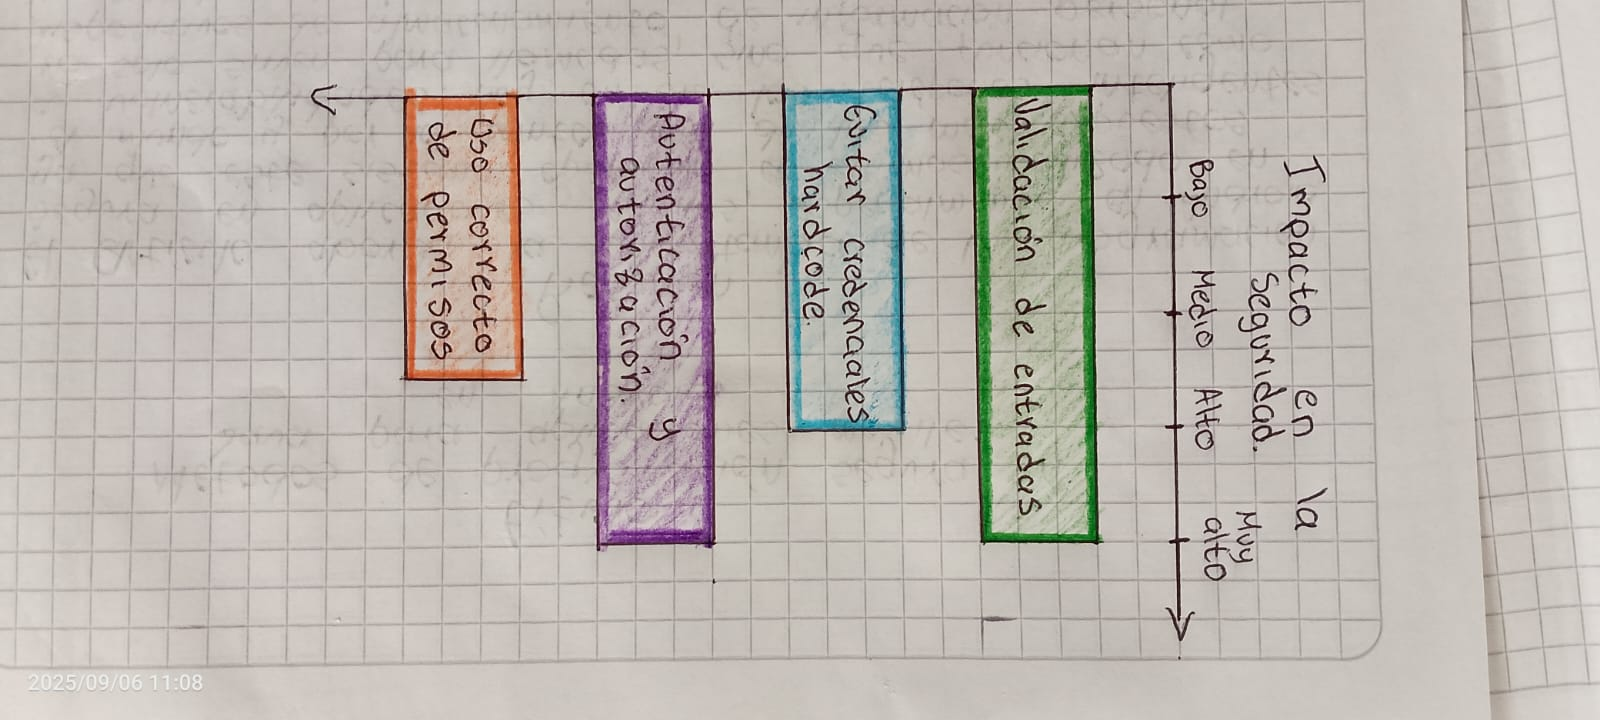 Impacto en la
Seguridad.
Bajo
Medio
Alto
Muy
alto
Validación de entradas
Evitar credenaales
hardcode.
Autenticación y
autorización.
Uso correcto
de permisos
2025/09/06 11:08